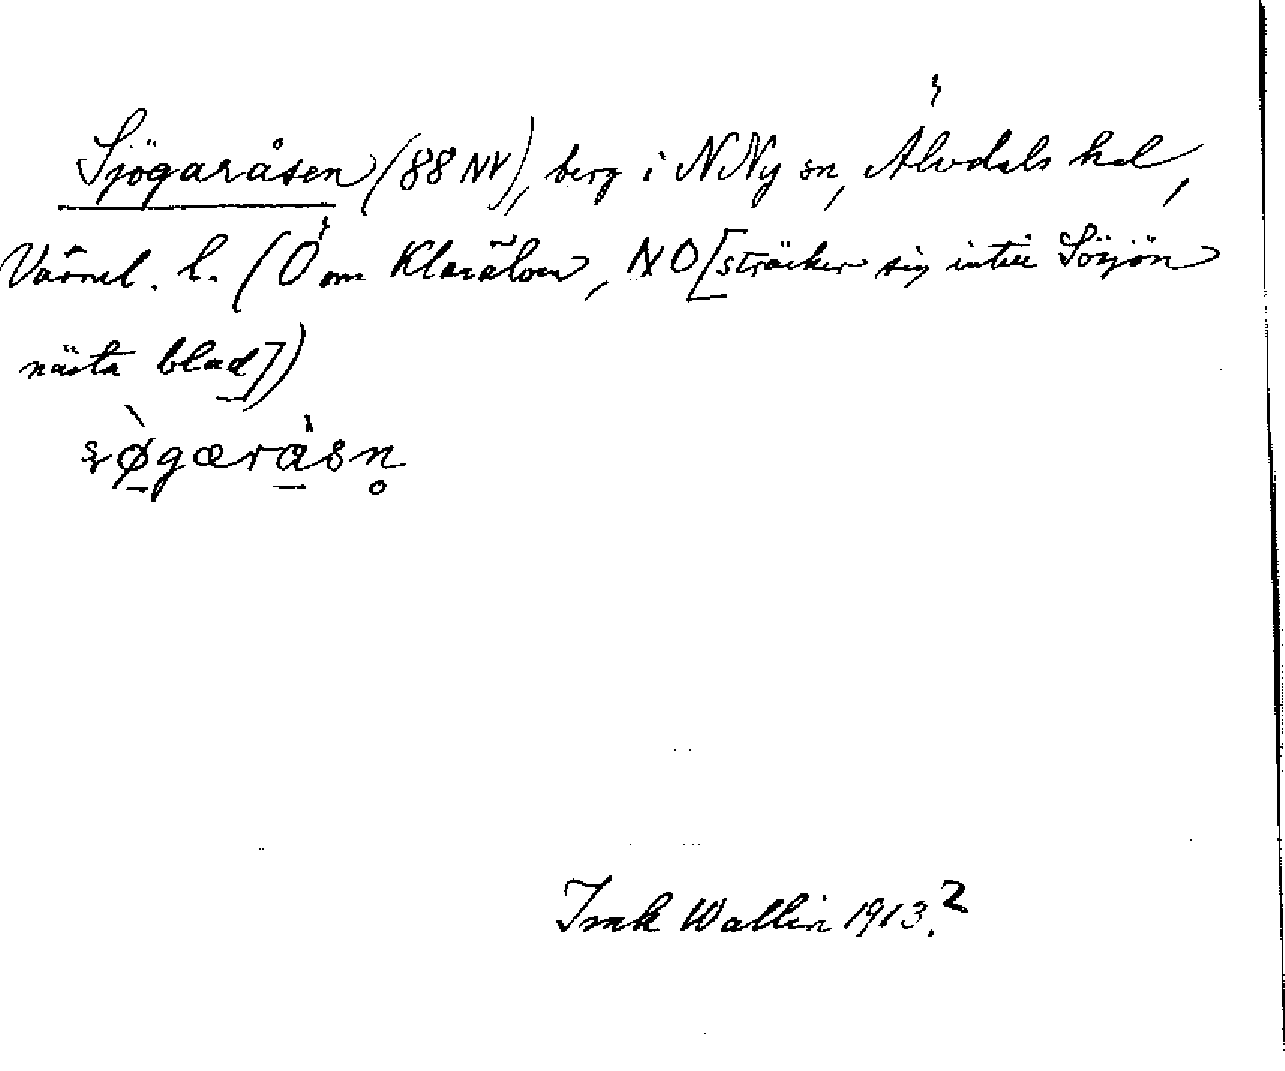 Sjögaråsen (88 NV), berg i N Ny sn, Älvdals hd,
Värml. l. (Ö om Klarälven, NO [sträcker sig intill Sörjön
nästa blad])
søgæråsn̥
Wallin 1913.2